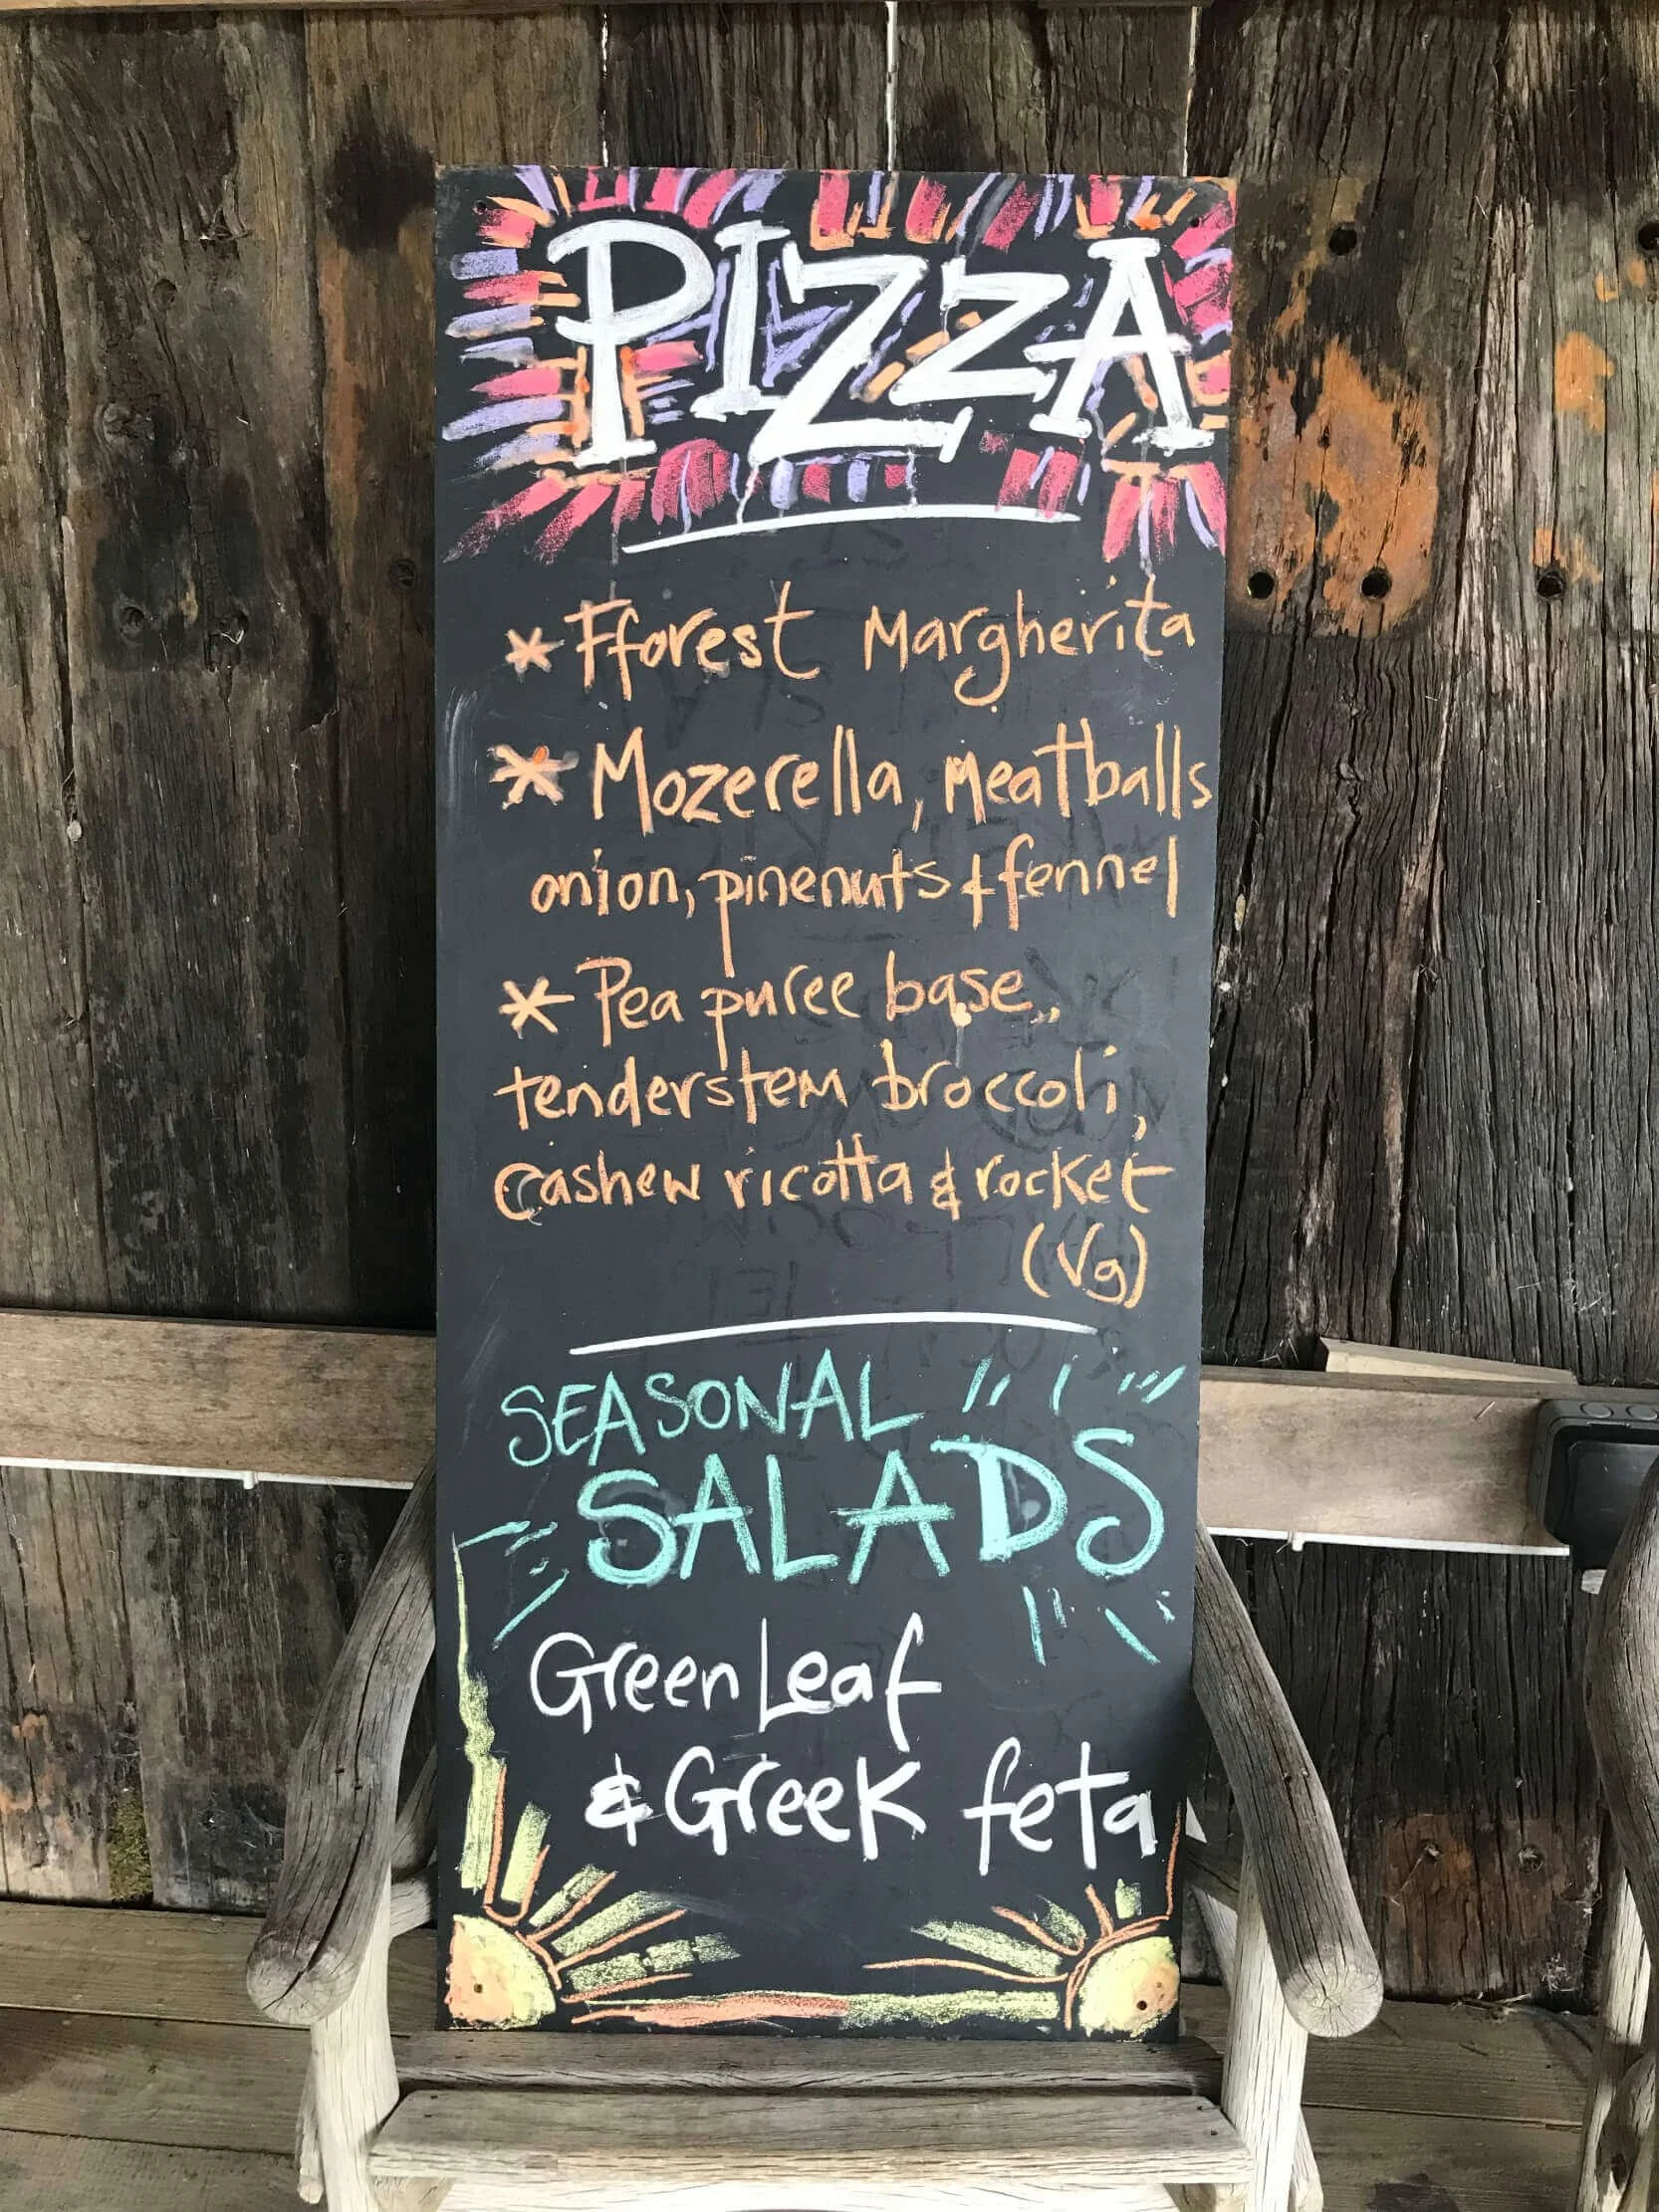 PIZZA
* Fforest Margherita
* Mozerella, Meatballs
onion, pinenuts & fennel
* Pea puree base,,
tenderstem broccoli,
Cashew ricotta & rocket
(Vg)
SEASONAL
SALADS
Green Leaf
& Greek feta